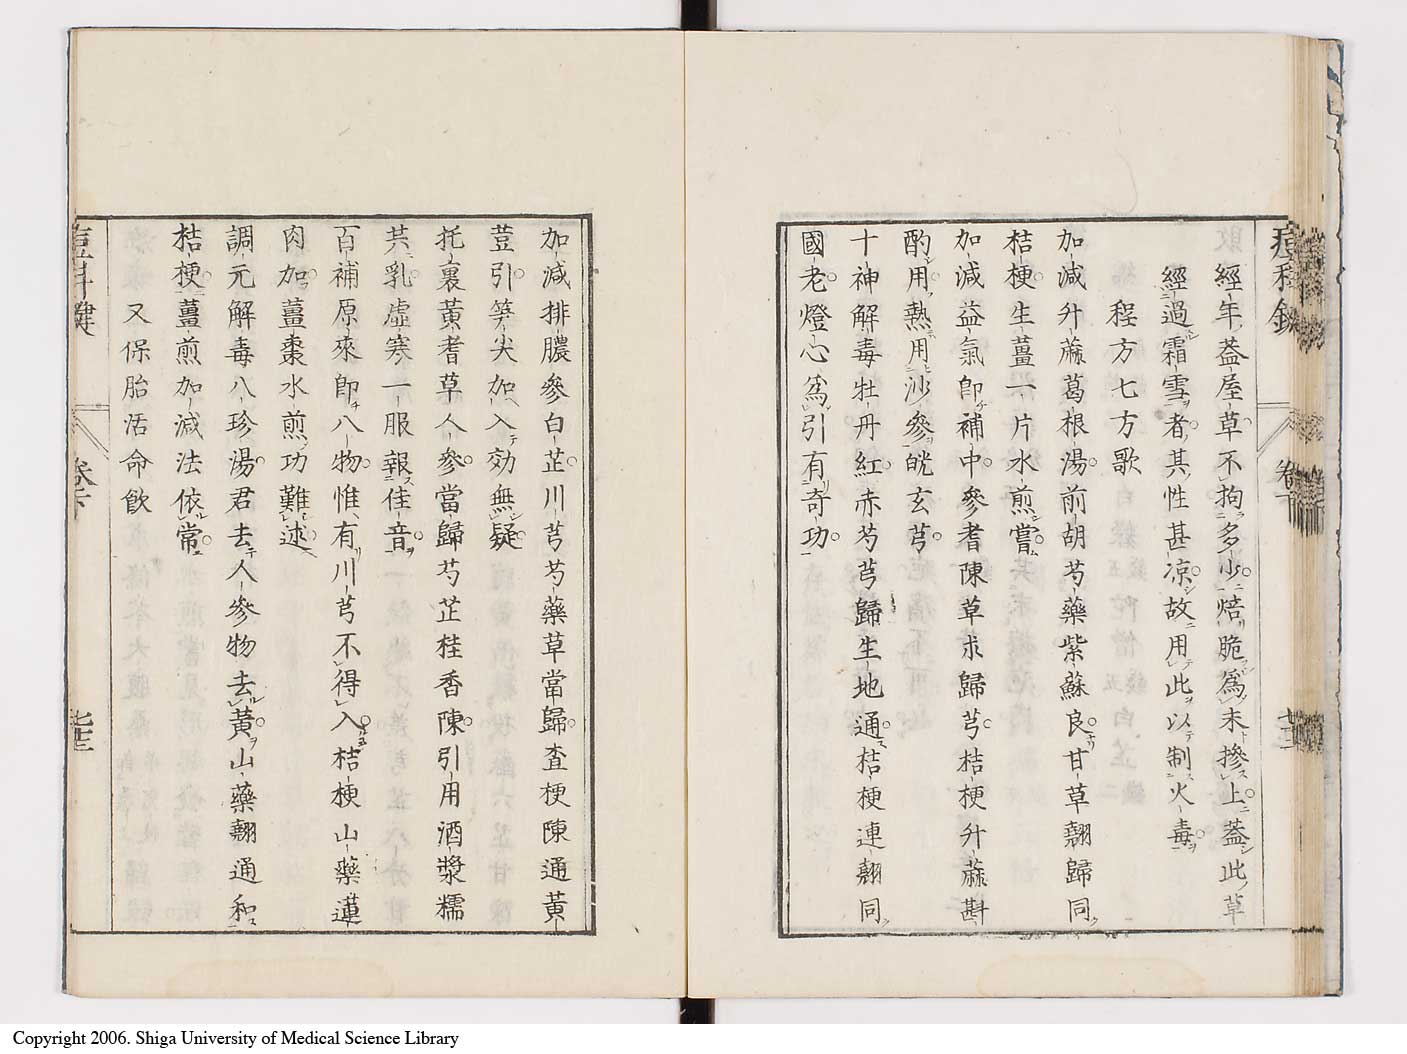 經年葢屋草不拘多少焙脆爲末摻上葢此草
經過霜雪者其性甚凉故用此以制火毒
程方七方歌
加減升蔴葛根湯前胡芍藥紫蘇良甘草翹歸同
桔梗生薑一片水煎嘗
加減益氣卽補中參耆陳草求歸芎桔梗升蔴斟
酌用熱用沙參皝玄芎
十神解毒牡丹紅赤芍芎歸生地通桔梗連翹同
國老燈心爲引有奇功
加減排膿參白芷川芎芍藥草當歸査梗陳通黃
荳引笋尖加入効無疑
托裏黃耆草人參當歸芍芷桂香陳引用酒漿糯
共乳虛寒一服報佳音
百補原來卽八物惟有川芎不得入桔梗山藥蓮
肉加薑棗水煎功難述
調元解毒八珍湯君去人參物去黃山藥翹通和
桔梗薑煎加減法依常
又保胎活命飲
卷下
七十三
Copyright 2006. Shiga University of Medical Science Library